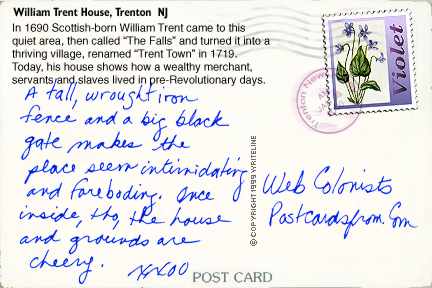 William Trent House, Trenton NJ
In 1690 Scottish-born William Trent came to this
quiet area, then called "The Falls" and turned it into a
thriving village, renamed "Trent Town" in 1719.
Today, his house shows how a wealthy merchant,
servants and slaves lived in pre-Revolutionary days.
A tall, wrought iron
fence and a big black
gate makes the
place seem intimidating
and foreboding. Once
inside, tho, the house
and grounds are
cheery.
XXOO
POST CARD
© COPYRIGHT 1999 WRITELINE
Violet
Trenton New
Web Colonists
Postcardsfrom.Com